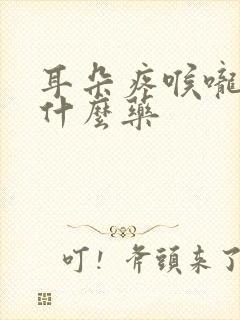 耳朵疼喉嚨
什麼藥
叮！斧頭來了